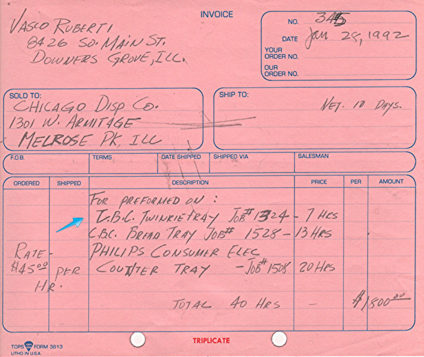 INVOICE
VASCO RUBERTI
8426 SO. MAIN ST.
DOWNERS GROVE, ILL.
NO. 345
DATE Jan 28, 1992
YOUR ORDER NO.
OUR ORDER NO.
SOLD TO:
CHICAGO DISP CO.
1301 W. ARMITAGE
MELROSE PK, ILL
SHIP TO:
NET. 10 DAYS.
F.O.B. TERMS DATE SHIPPED SHIPPED VIA SALESMAN
ORDERED SHIPPED DESCRIPTION PRICE PER AMOUNT
FOR PREFORMED ON :
C.B.C. TWINKIE TRAY JOB# 1324 - 7 HRS
C.B.C. BREAD TRAY JOB# 1528 - 13 HRS
PHILIPS CONSUMER ELEC
COUTTER TRAY - JOB# 1508 20 HRS
RATE-
$45.00 PER
HR.
TOTAL 40 HRS - $1800.00
TOPS FORM 3613
LITHO IN U.S.A.
TRIPLICATE